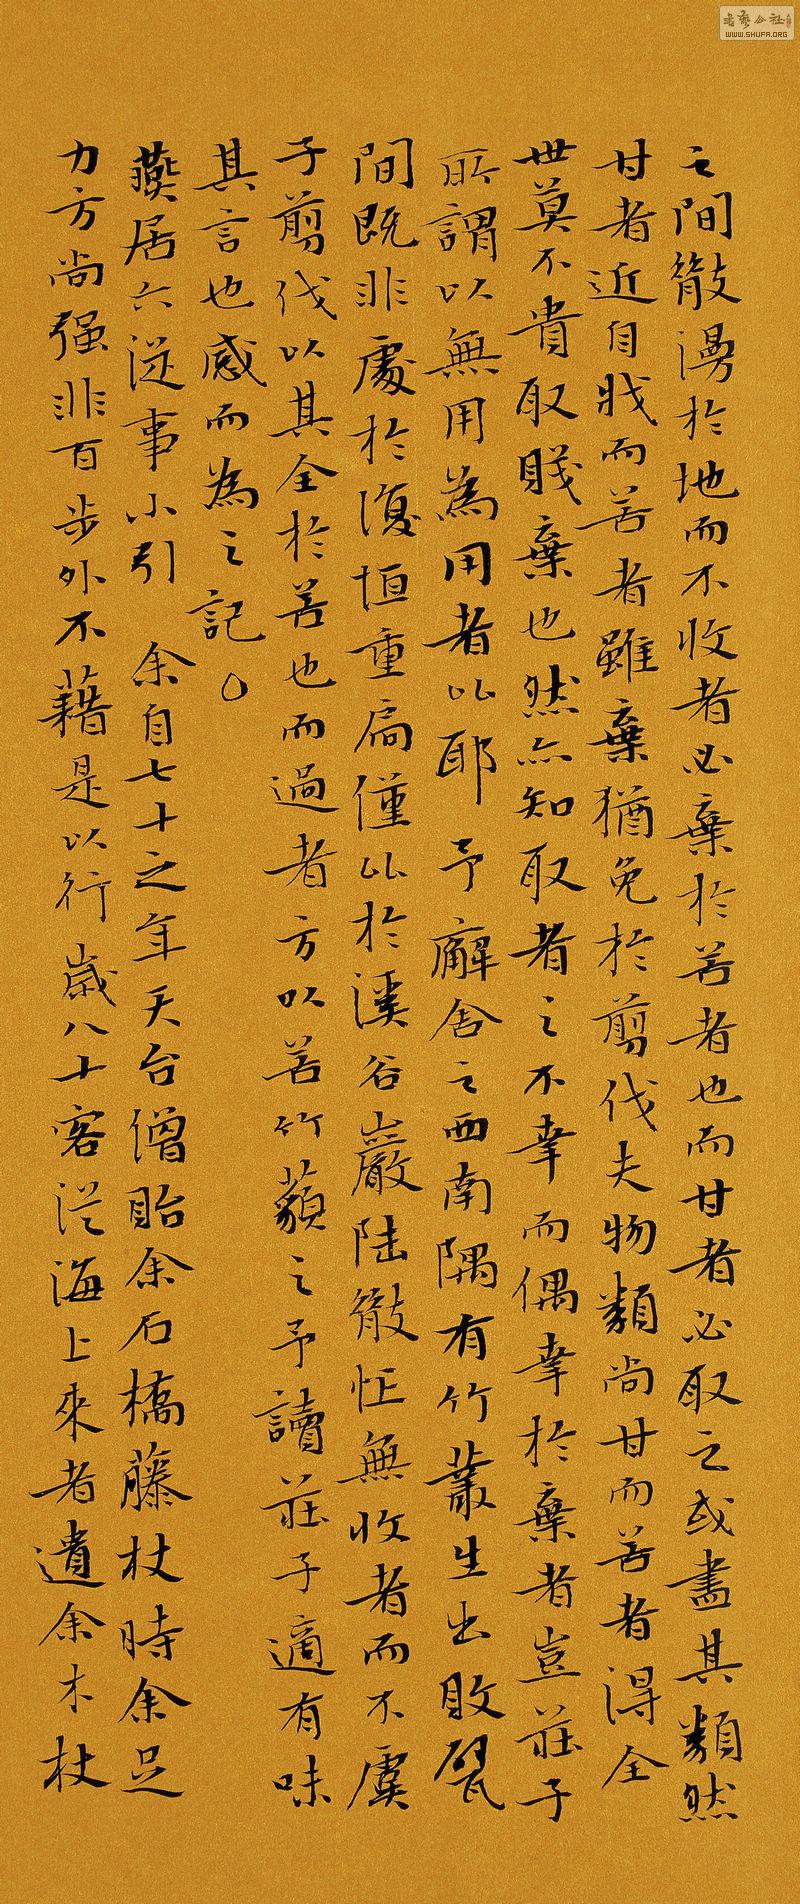 之間散漫於地而不收者必棄於苦者也而甘者必取之或盡其類然
甘者近自戕而苦者雖棄猶免於剪伐夫物類尚甘而苦者得全
世莫不貴取賤棄也然亦知取者之不幸而偶幸於棄者豈莊子
所謂以無用為用者比耶 予廨舍之西南隅有竹叢生出敗甓
間既非處於復垣重扃僅比於溪谷巖陸散恠無收者而不虞
子剪伐以其全於苦也而過者方以苦竹藐之予讀莊子適有味
其言也感而為之記
燕居六從事小引 余自七十之年天台僧貽余石橋藤杖時余足
力方尚强非百步外不藉是以行 歲八十客從海上來者遺余木杖
書藝公社
WWW.SHUFA.ORG